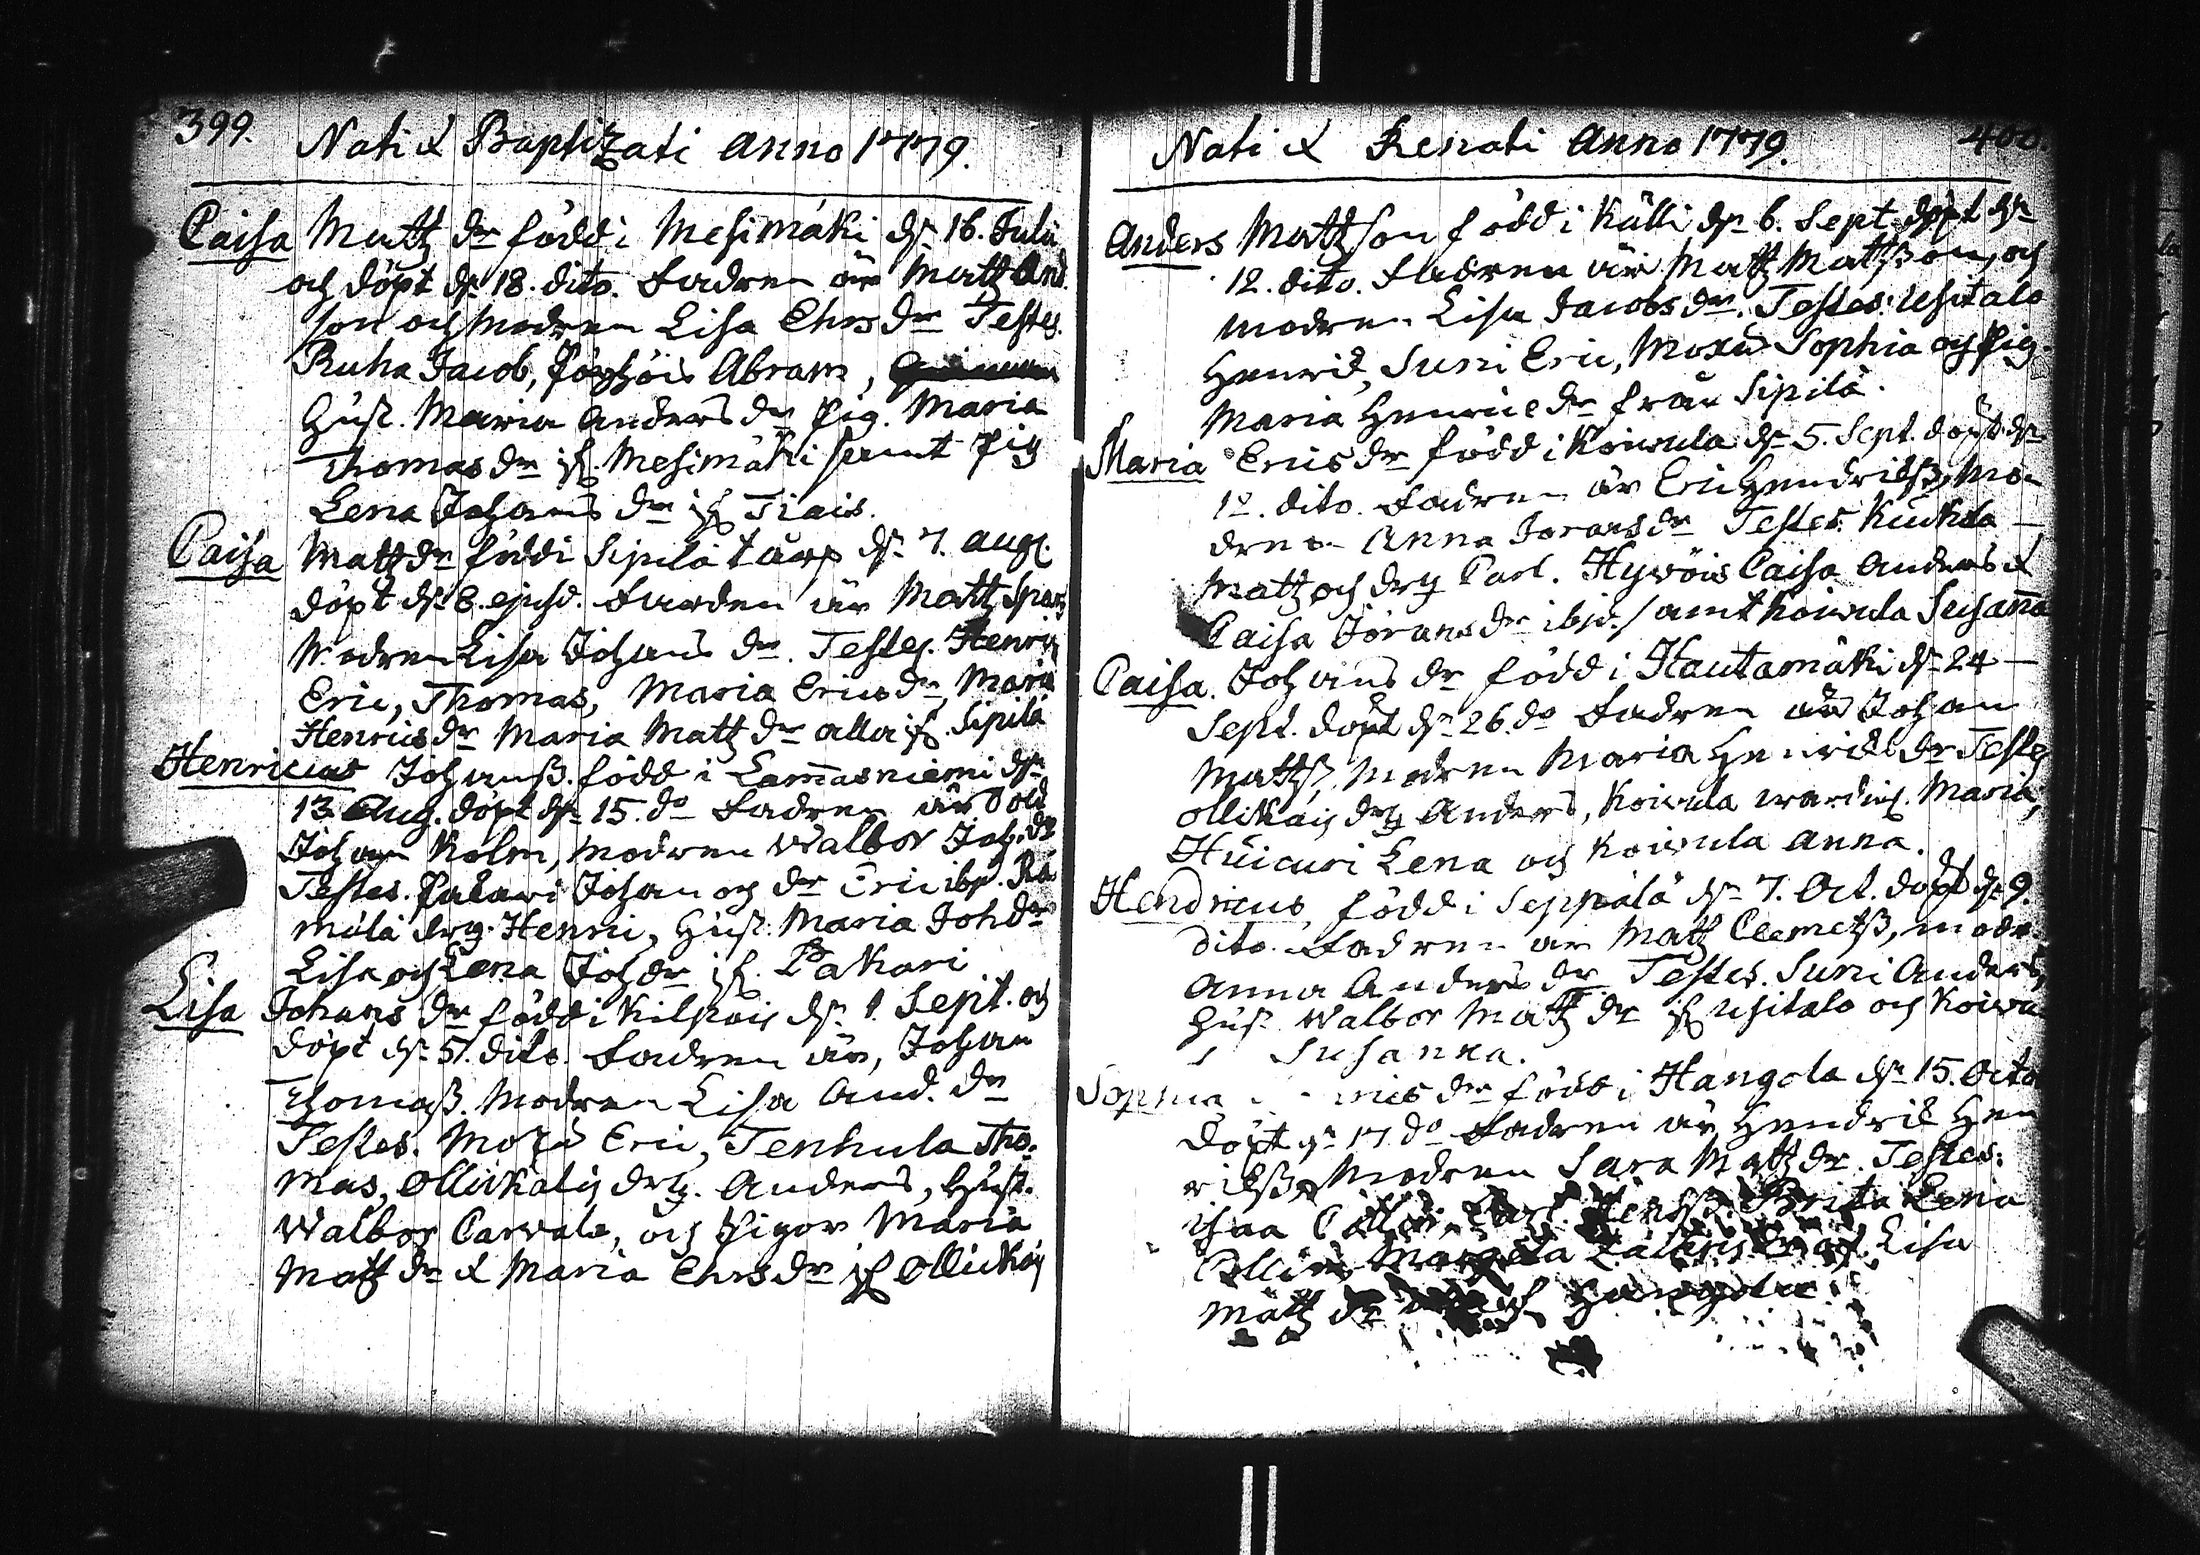 399.
Nati & Baptizati Anno 1779.
Caisa Mattz dr född i Mesimäki dn 16. Julii
och döpt dn 18. dito. Fadren är Mattz And.
son och Modren Lisa Chrs dr Testes.
Ruha Jacob, Abram,
Hust. Maria Anders dr Pig. Maria
Thomas dr if. Mesimäki samt Pig
Lena Johans dr if Tiais.
Caisa Mattz dr född i Sipilä torp dn 7. Aug.
döpt dn 8. ejusd. Farden är Mattz
Modren Lisa Johans dr. Testes. Henric
Eric, Thomas, Maria Erics dr, Maria
Henrics dr Maria Mattz dr alla if. Sipilä
Henricus Johanss. född i Lam̄asniemi dn
13 Aug. döpt dn 15. do Fadren är Sold
Johan Holm, Modren Walbor Joh. dr
Testes. Pakari Johan och dr Eric ibd.
mülä drg. Henric, Hust. Maria Joh dr
Lisa och Lena Joh dr if. Pakari
Lisa Johans dr född i Kilpois dn 1 Sept. och
döpt dn 5. dito. Fadren är, Johan
Thomass. Modren Lisa And. dr
Testes. Moxu Eric, Tenhula Tho-
mas, Ollickais drg. Anders, Hust.
Walbor Carvala, och Pigor Maria
Mattz dr & Maria Chrs dr if Ollickais
Nati & Renati Anno 1779.
400.
Anders Mattzson född i Källi dn 6. Sept. döpt dn
12. dito. Fadren är Mattz Mattsson, och
modren Lisa Jacobs dr. Testes: Usitalo
Henric, Suni Eric, Moxu Sophia och Pig.
Maria Henrics dr från Sipilä.
Maria Erics dr född i Koivula dn 5. Sept. döpt dn
12. dito. Fadren är Eric Hendrikss, Mo-
dren Anna Jorans dr Testes: Kuckola
Mattz och drg Carl. Hyvöis Caisa Anders &
Caisa Jörans dr ibid. samt Koivula Susan̄a
Caisa. Johans dr född i Hautamäki dn 24
Sept. döpt dn 26. do Fadren är Johan
Mattss, Modren Maria Henriks dr Testes
Ollikais drg Anders, Koivula Maria,
Huicuri Lena och Koivula Anna.
Hendricus, född i Seppälä dn 7. Oct. döpt dn 9.
dito. Fadren är Mattz Clemetss, modr.
Anna Anders dr. Testes. Suni Anders,
Hust Walbor Mattz dr if Usitalo och Koivu
Susanna.
Sophia dr född i Hangola dn 15. Octo
döpt dn 17 do Fadren är Hendric Hen
rikss, Modren Sara Mattz dr. Testes:
Brita Lena
Lisa
Mattz dr Hangola